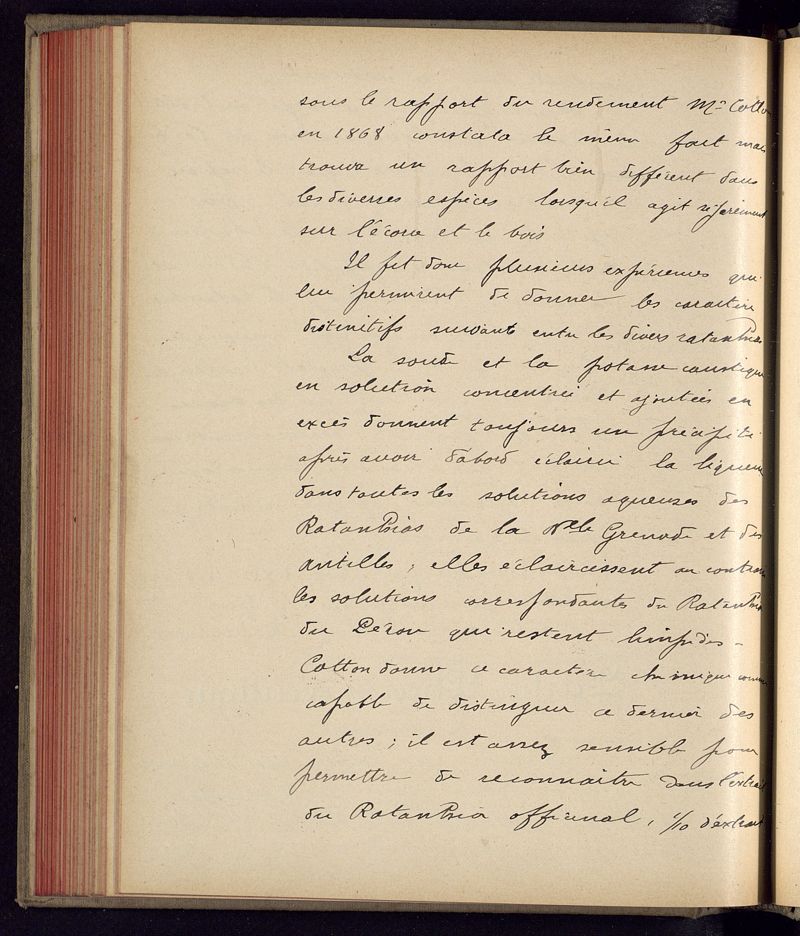 sous le rapport du rendement Mr Cotton
en 1868 constata le même fait mais
trouva un rapport bien différent dans
les diverses espèces lorsqu'il agit séparément
sur l'écorce et le bois
Il fit donc plusieurs expériences qui
lui permirent de donner les caractères
distinctifs suivants entre les divers ratanhias
La soude et la potasse caustique
en solution concentrée et ajoutées en
excès donnent toujours un précipité
après avoir d'abord éclairci la liqueur
dans toutes les solutions aqueuses des
Ratanhias de la Nlle Grenade et des
Antilles ; elles éclaircissent au contraire
les solutions correspondantes du Ratanhia
du Pérou qui restent limpides -
Cotton donne ce caractère chimique comme
capable de distinguer ce dernier des
autres ; il est assez sensible pour
permettre de reconnaître dans l'extrait
du Ratanhia officinal, 1/10 d'extrait